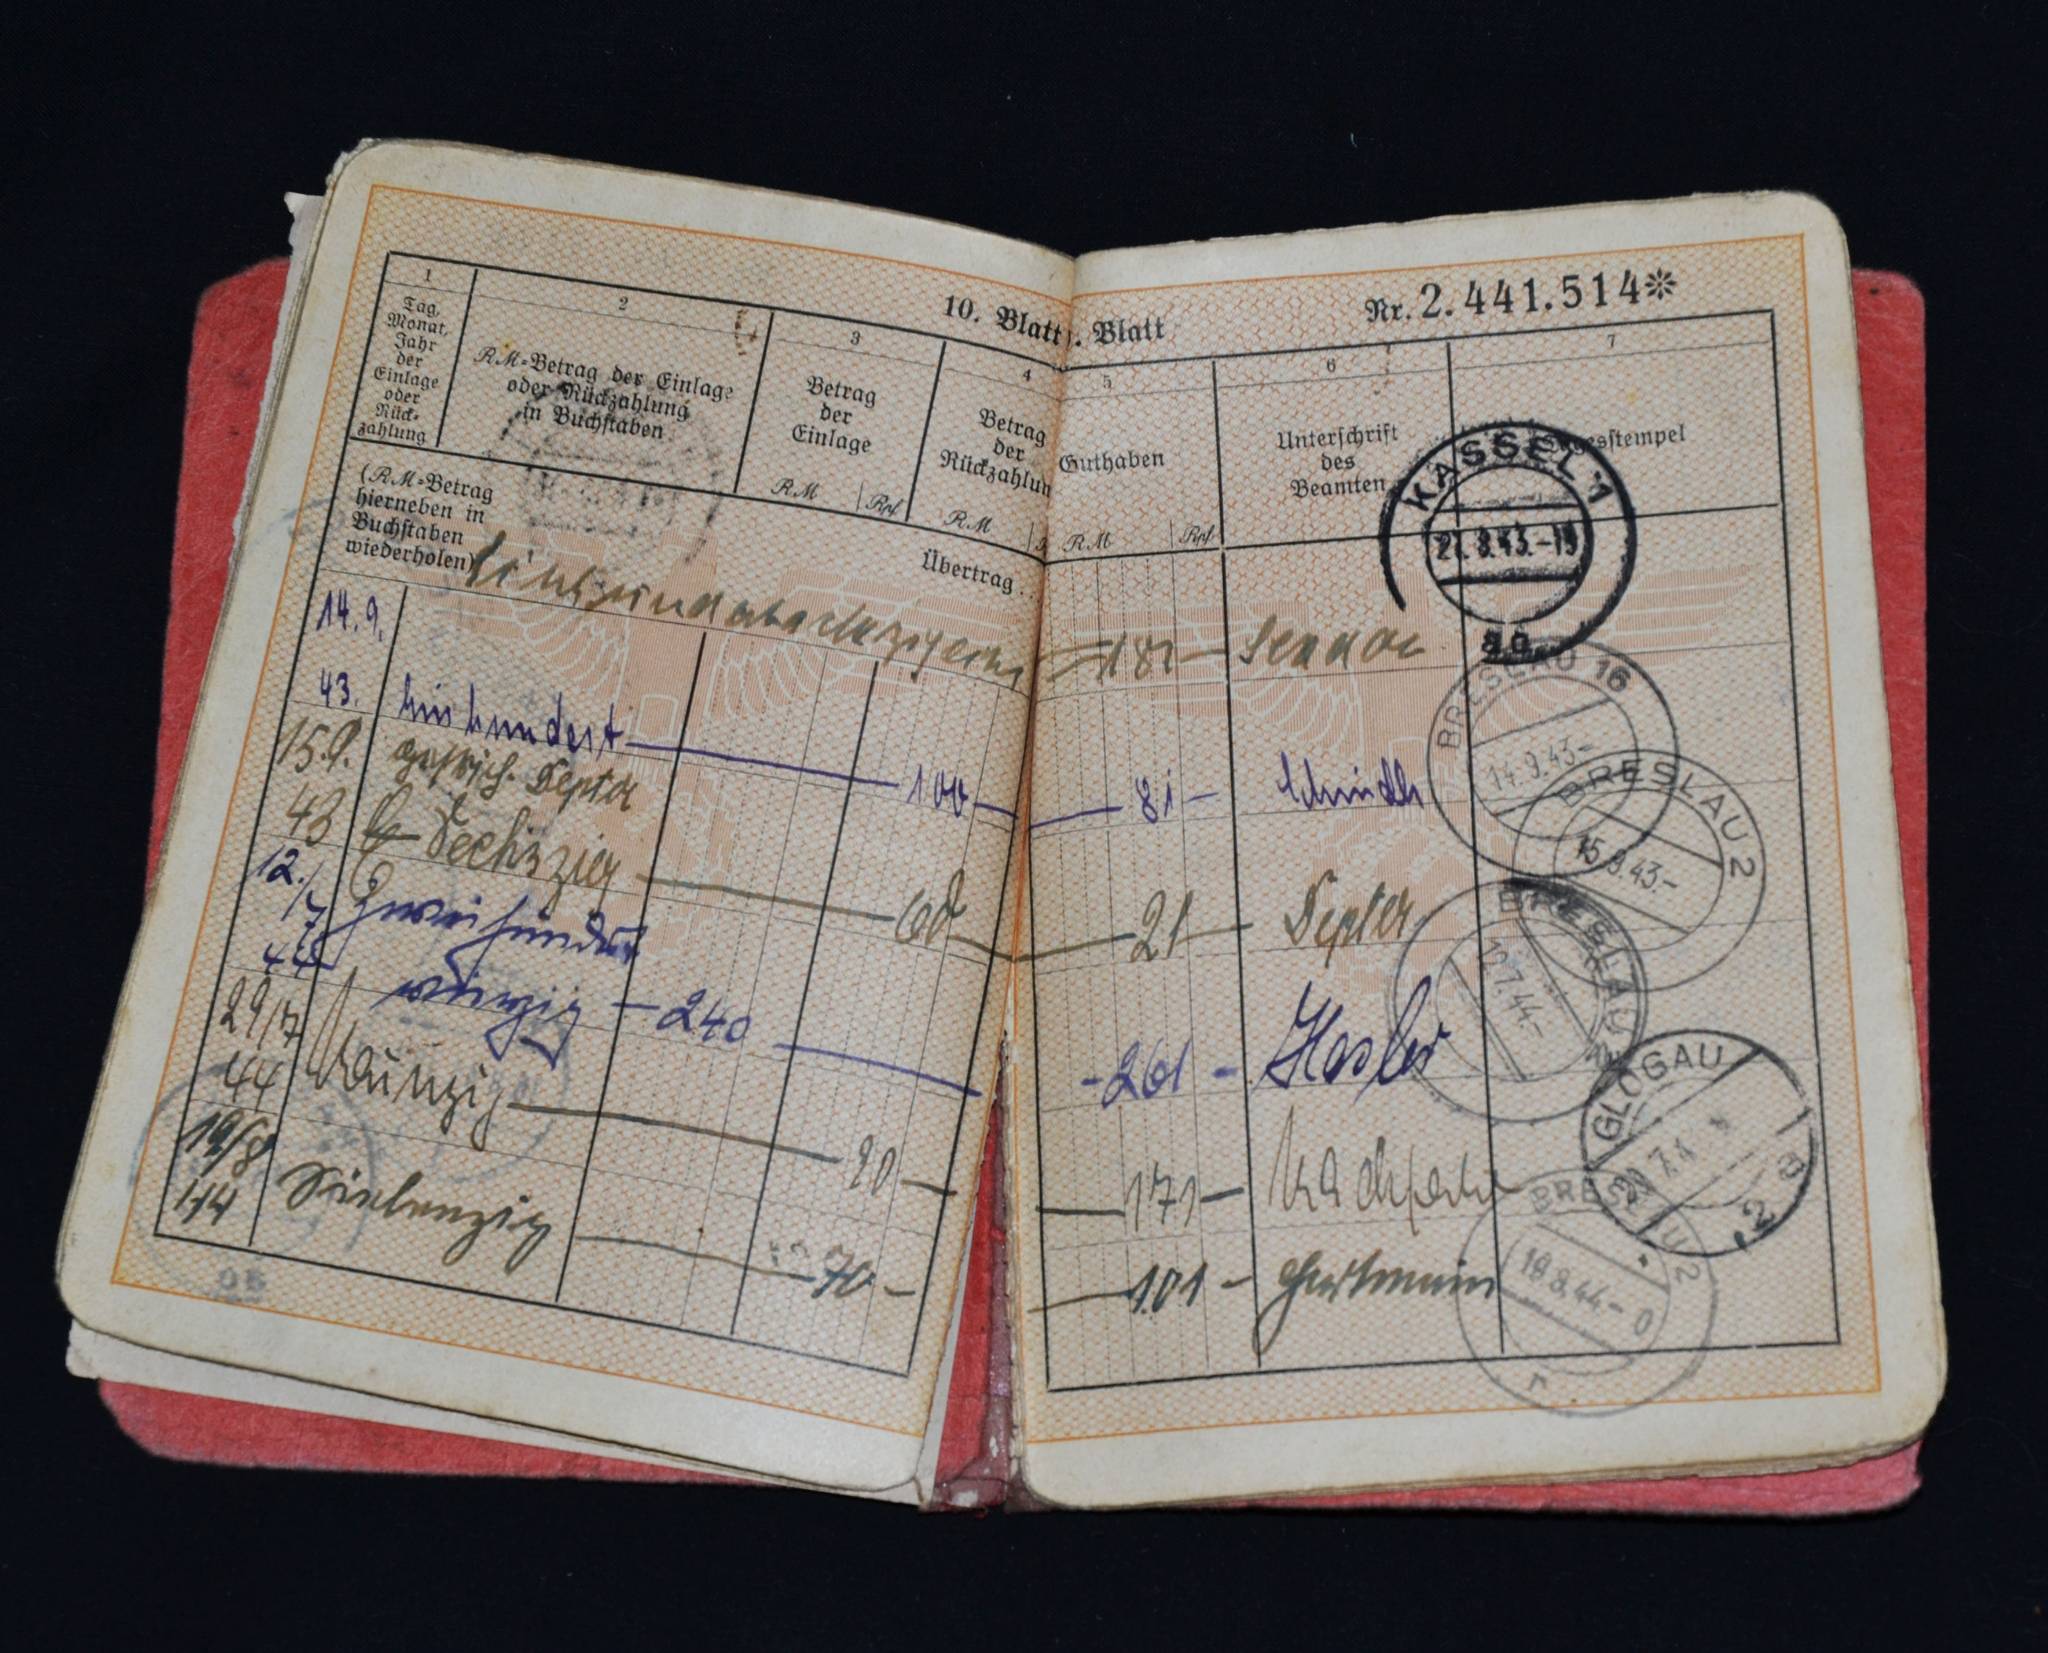 10. Blatt
1
Tag,
Monat,
Jahr
der
Einlage
oder
Rück-
zahlung
2
RM=Betrag der Einlage
oder Rückzahlung
in Buchstaben
3
Betrag
der
Einlage
RM Rpf
4
Betrag
der
Rückzahlun
RM
(RM=Betrag
hierneben in
Buchstaben
wiederholen)
Übertrag
14.9.
43. Einhundert 100
15.9.
43 Sechszig 60
12./7
44 Zweihundert
vierzig - 240
29/7
44 Neunzig 90
19/8
44 Siebenzig 70 -
. Blatt
Nr. 2.441.514*
5
Guthaben
RM Rpf
6
Unterschrift
des
Beamten
7
esstempel
181 -
81 -
21 -
- 261 -
171 -
101 -
KASSEL 1
21.8.43.-19
BRESLAU 16
14.9.43.-
BRESLAU 2
15.9.43.-
BRESLAU
12.7.44.-
GLOGAU
2
BRESLAU 2
19.8.44.-0